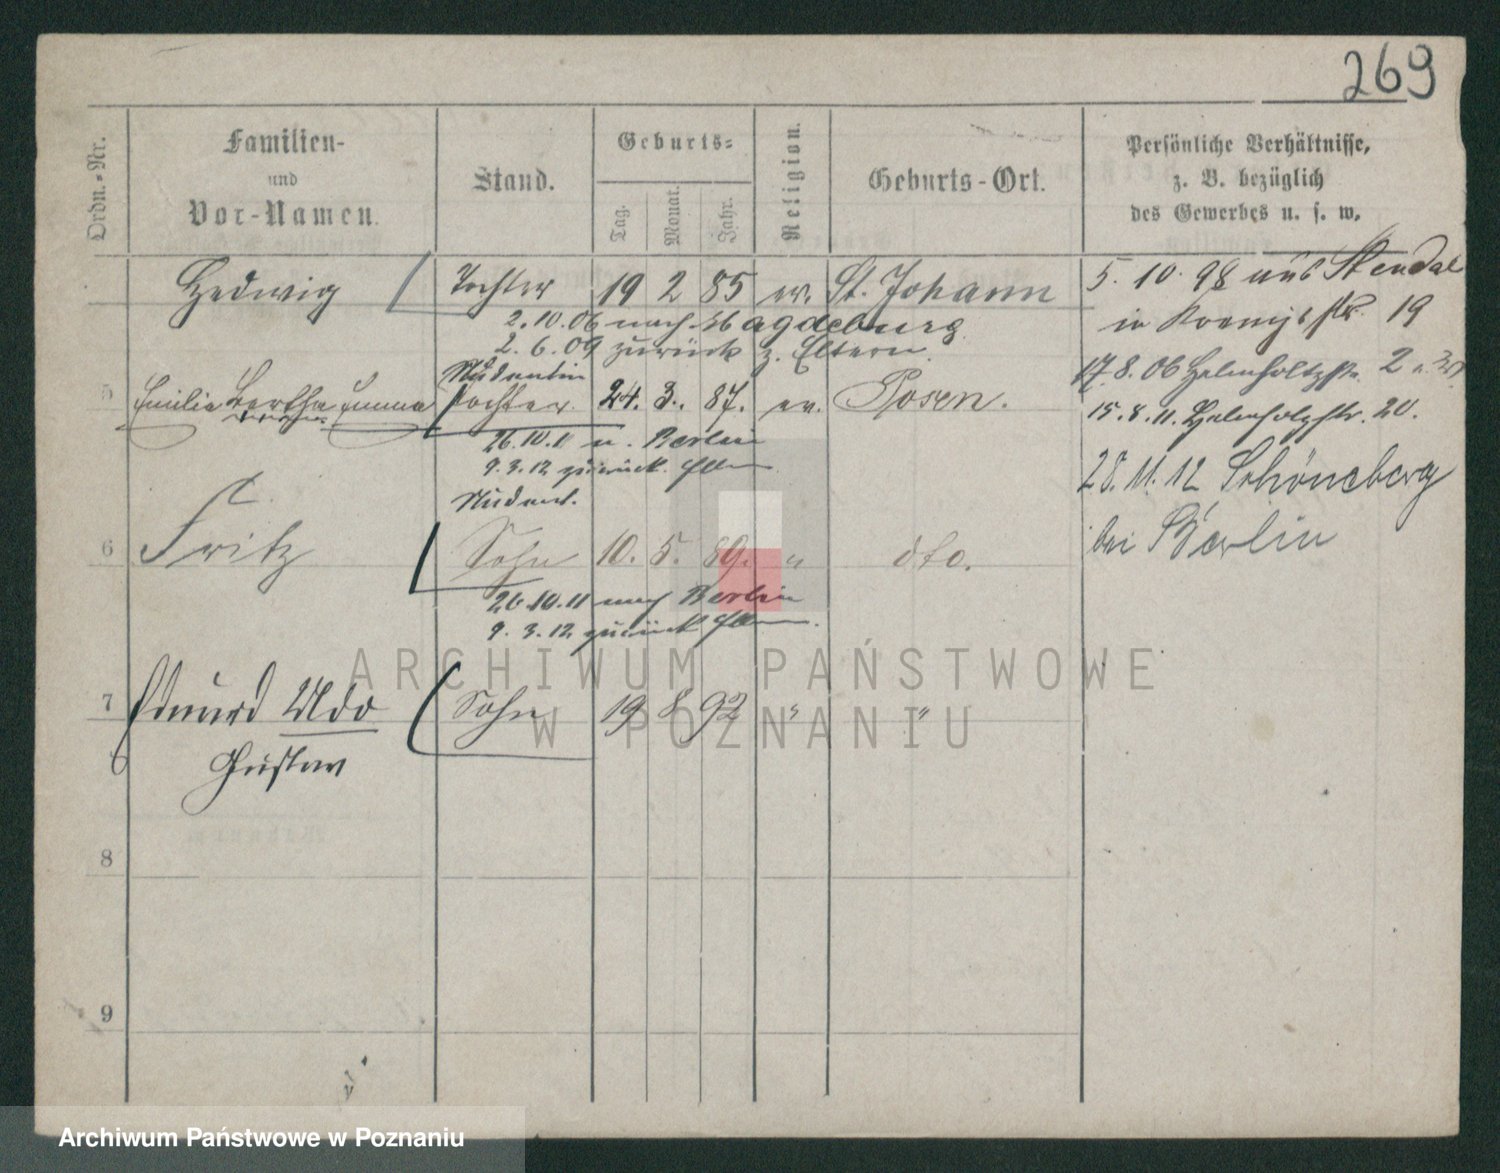 269
Ordn.-Nr.
Familien-
und
Vor-Namen.
Stand.
Geburts-
Tag.
Monat.
Jahr.
Religion.
Geburts-Ort.
Persönliche Verhältnisse,
z. B. bezüglich
des Gewerbes u. s. w.
Hedwig Tochter 19 2 85 ev. St. Johann
2.10.06 nach Magdeburg
2.6.09 zurück z. Eltern.
Studentin
5 Emilie Bertha Emma Tochter. 24. 3. 87. ev. Posen.
26.10.11 n. Berlin
9.3.12 zurück
Student.
6 Fritz Sohn 10. 5. 89. " dto.
26.10.11 nach Berlin
9.3.12 zurück
7 Eduard Udo Sohn 19 8 92 " "
Gustav
8
9
5. 10. 98 aus Stendal
in Koenigstr. 19
17.8.06 Helmholtzstr. 2
15.8.11. Helmholtzstr. 20.
28.11.12 Schöneberg
bei Berlin
ARCHIWUM PAŃSTWOWE
W POZNANIU
Archiwum Państwowe w Poznaniu